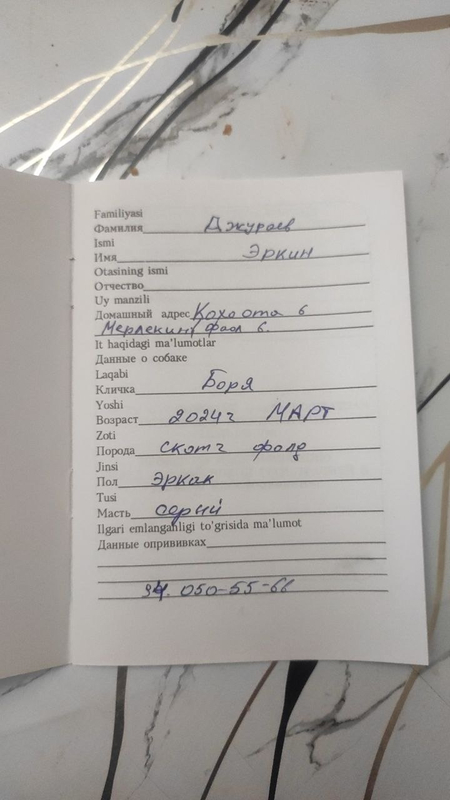 Familiyasi
Фамилия Джураев
Ismi
Имя Эркин
Otasining ismi
Отчество
Uy manzili
Домашный адрес Коха ота 6
6.
It haqidagi ma'lumotlar
Данные о собаке
Laqabi
Кличка Боря
Yoshi
Возраст 2024г МАРТ
Zoti
Порода скотч фолд
Jinsi
Пол эркак
Tusi
Масть серый
Ilgari emlanganligi to'grisida ma'lumot
Данные опрививках
94. 050-55-66